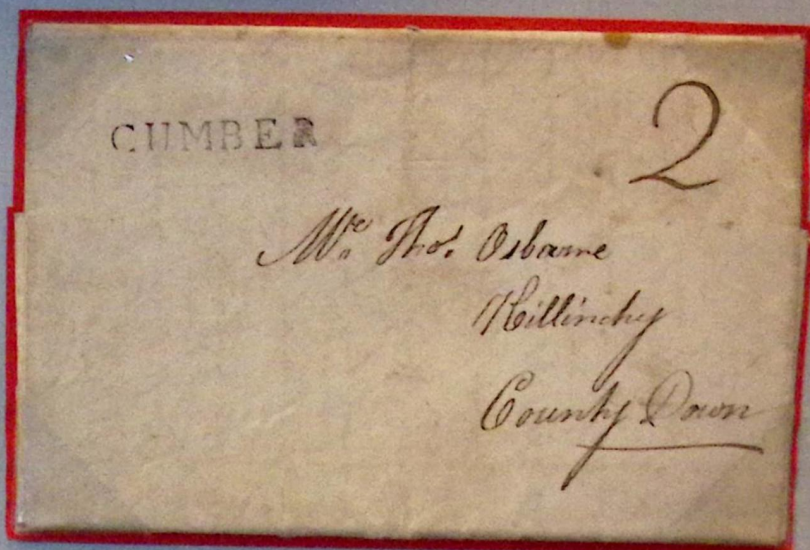 CUMBER
2
Mr. Thos. Osborne
Killinchy
County Down